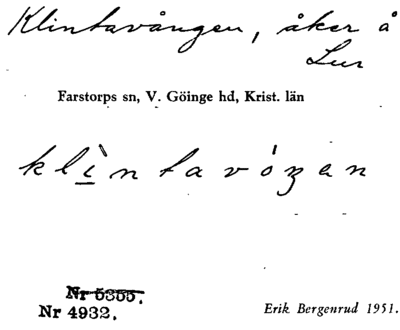 Klintavången, åker å
Lur
Farstorps sn, V. Göinge hd, Krist. län
klìntavóʒan
Nr 5355.
Nr 4932.
Erik Bergenrud 1951.